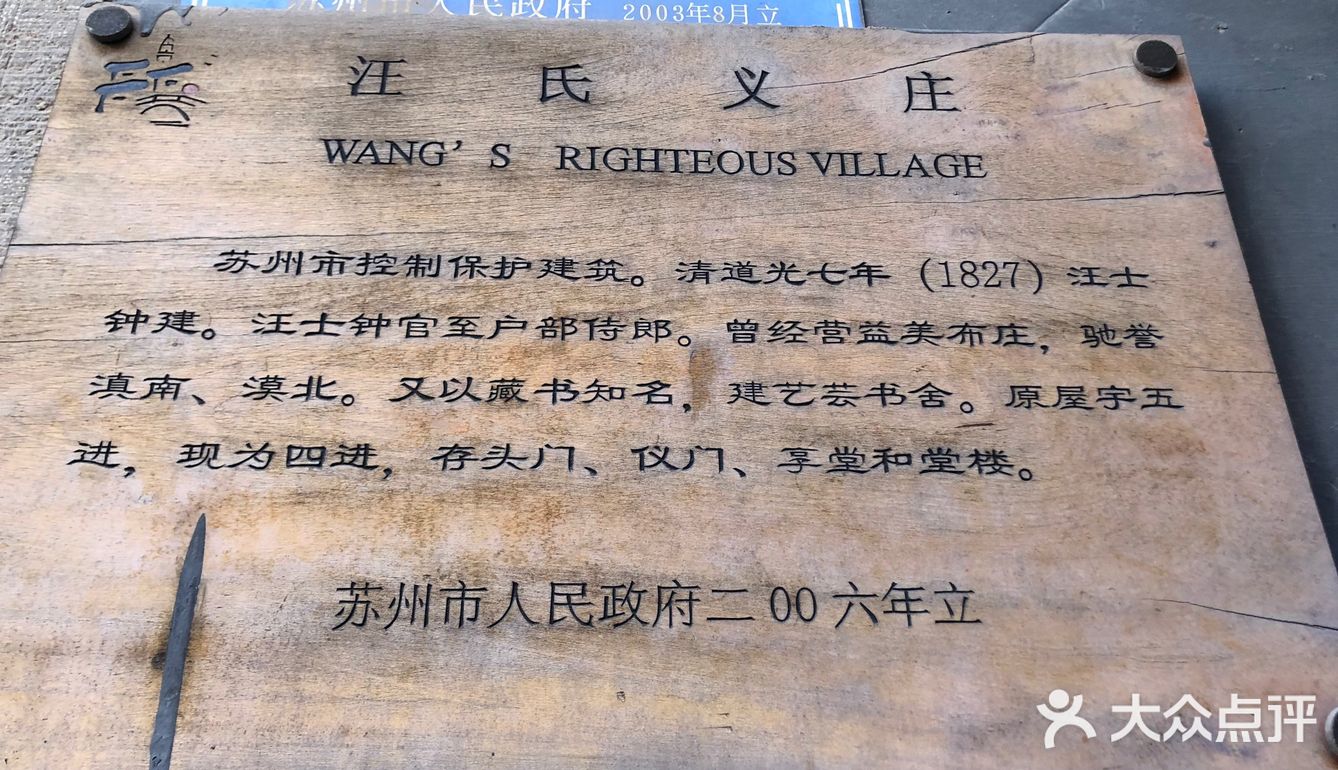 苏州市人民政府 2003年8月立
汪氏义庄
WANG'S RIGHTEOUS VILLAGE
苏州市控制保护建筑。清道光七年（1827）汪士
钟建。汪士钟官至户部侍郎。曾经营益美布庄，驰誉
滇南、漠北。又以藏书知名，建艺芸书舍。原屋宇五
进，现为四进，存头门、仪门、享堂和堂楼。
苏州市人民政府二00六年立
大众点评